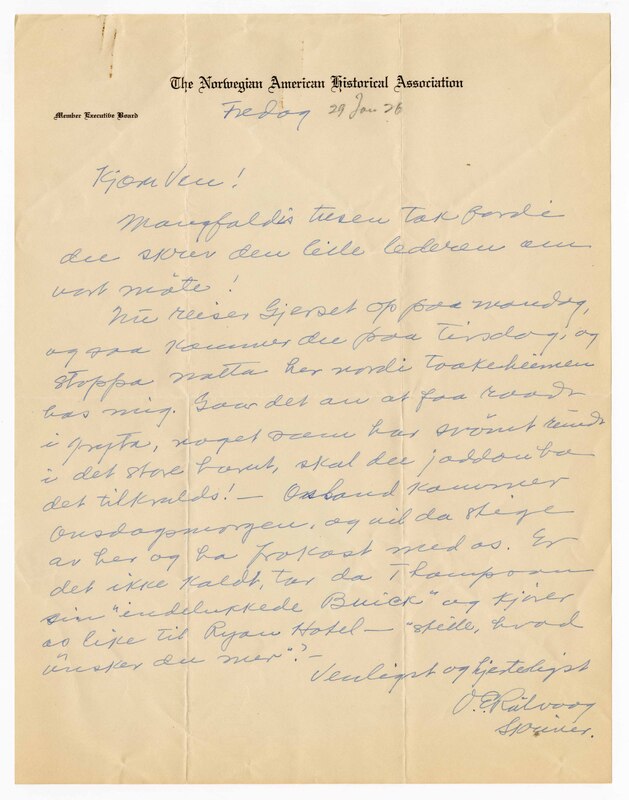 The Norwegian American Historical Association
Member Executive Board
Fredag 29 Jan 26
Kjære Ven!
Mangfoldig tusen tak fordi
du skrev den lille lederen om
vort møte!
Nu reiser Gjerset op paa mandag,
og saa kommer du paa Tirsdag, og
stoppa natta her nordi Taakeheimen
hos mig. Gaar det an at faa raadd
i gryta, noget som har svømt rundt
i det store havet, skal du jaddou ha
det tilkvelds! — Osland kommer
Onsdagsmorgen, og vil da stige
av her og ha frokost med os. Er
det ikke kaldt, tar da Thompson
sin "indelukkede Buick" og kjører
os like til Ryan Hotel — "stille, hvad
ønsker du mer"? —
Venligst og hjerteligst
O.E. Rölvaag